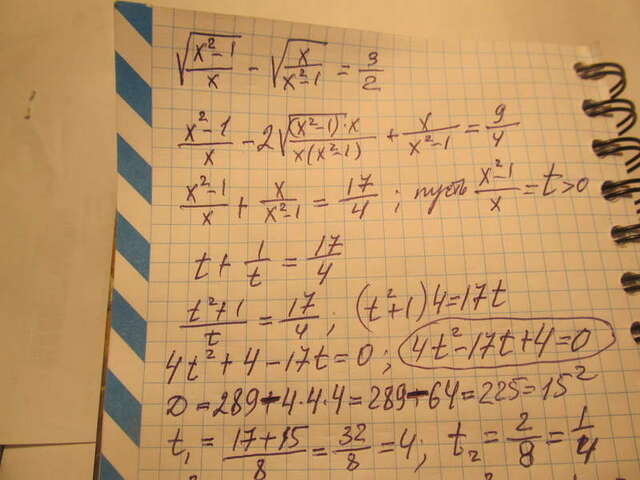 √((x²-1)/x) - √(x/(x²-1)) = 3/2
(x²-1)/x - 2√((x²-1)·x/(x(x²-1))) + x/(x²-1) = 9/4
(x²-1)/x + x/(x²-1) = 17/4 ; пусть (x²-1)/x = t > 0
t + 1/t = 17/4
(t²+1)/t = 17/4 ; (t²+1)4 = 17t
4t² + 4 - 17t = 0 ; 4t² - 17t + 4 = 0
D = 289 - 4·4·4 = 289 - 64 = 225 = 15²
t₁ = (17+15)/8 = 32/8 = 4 ; t₂ = 2/8 = 1/4